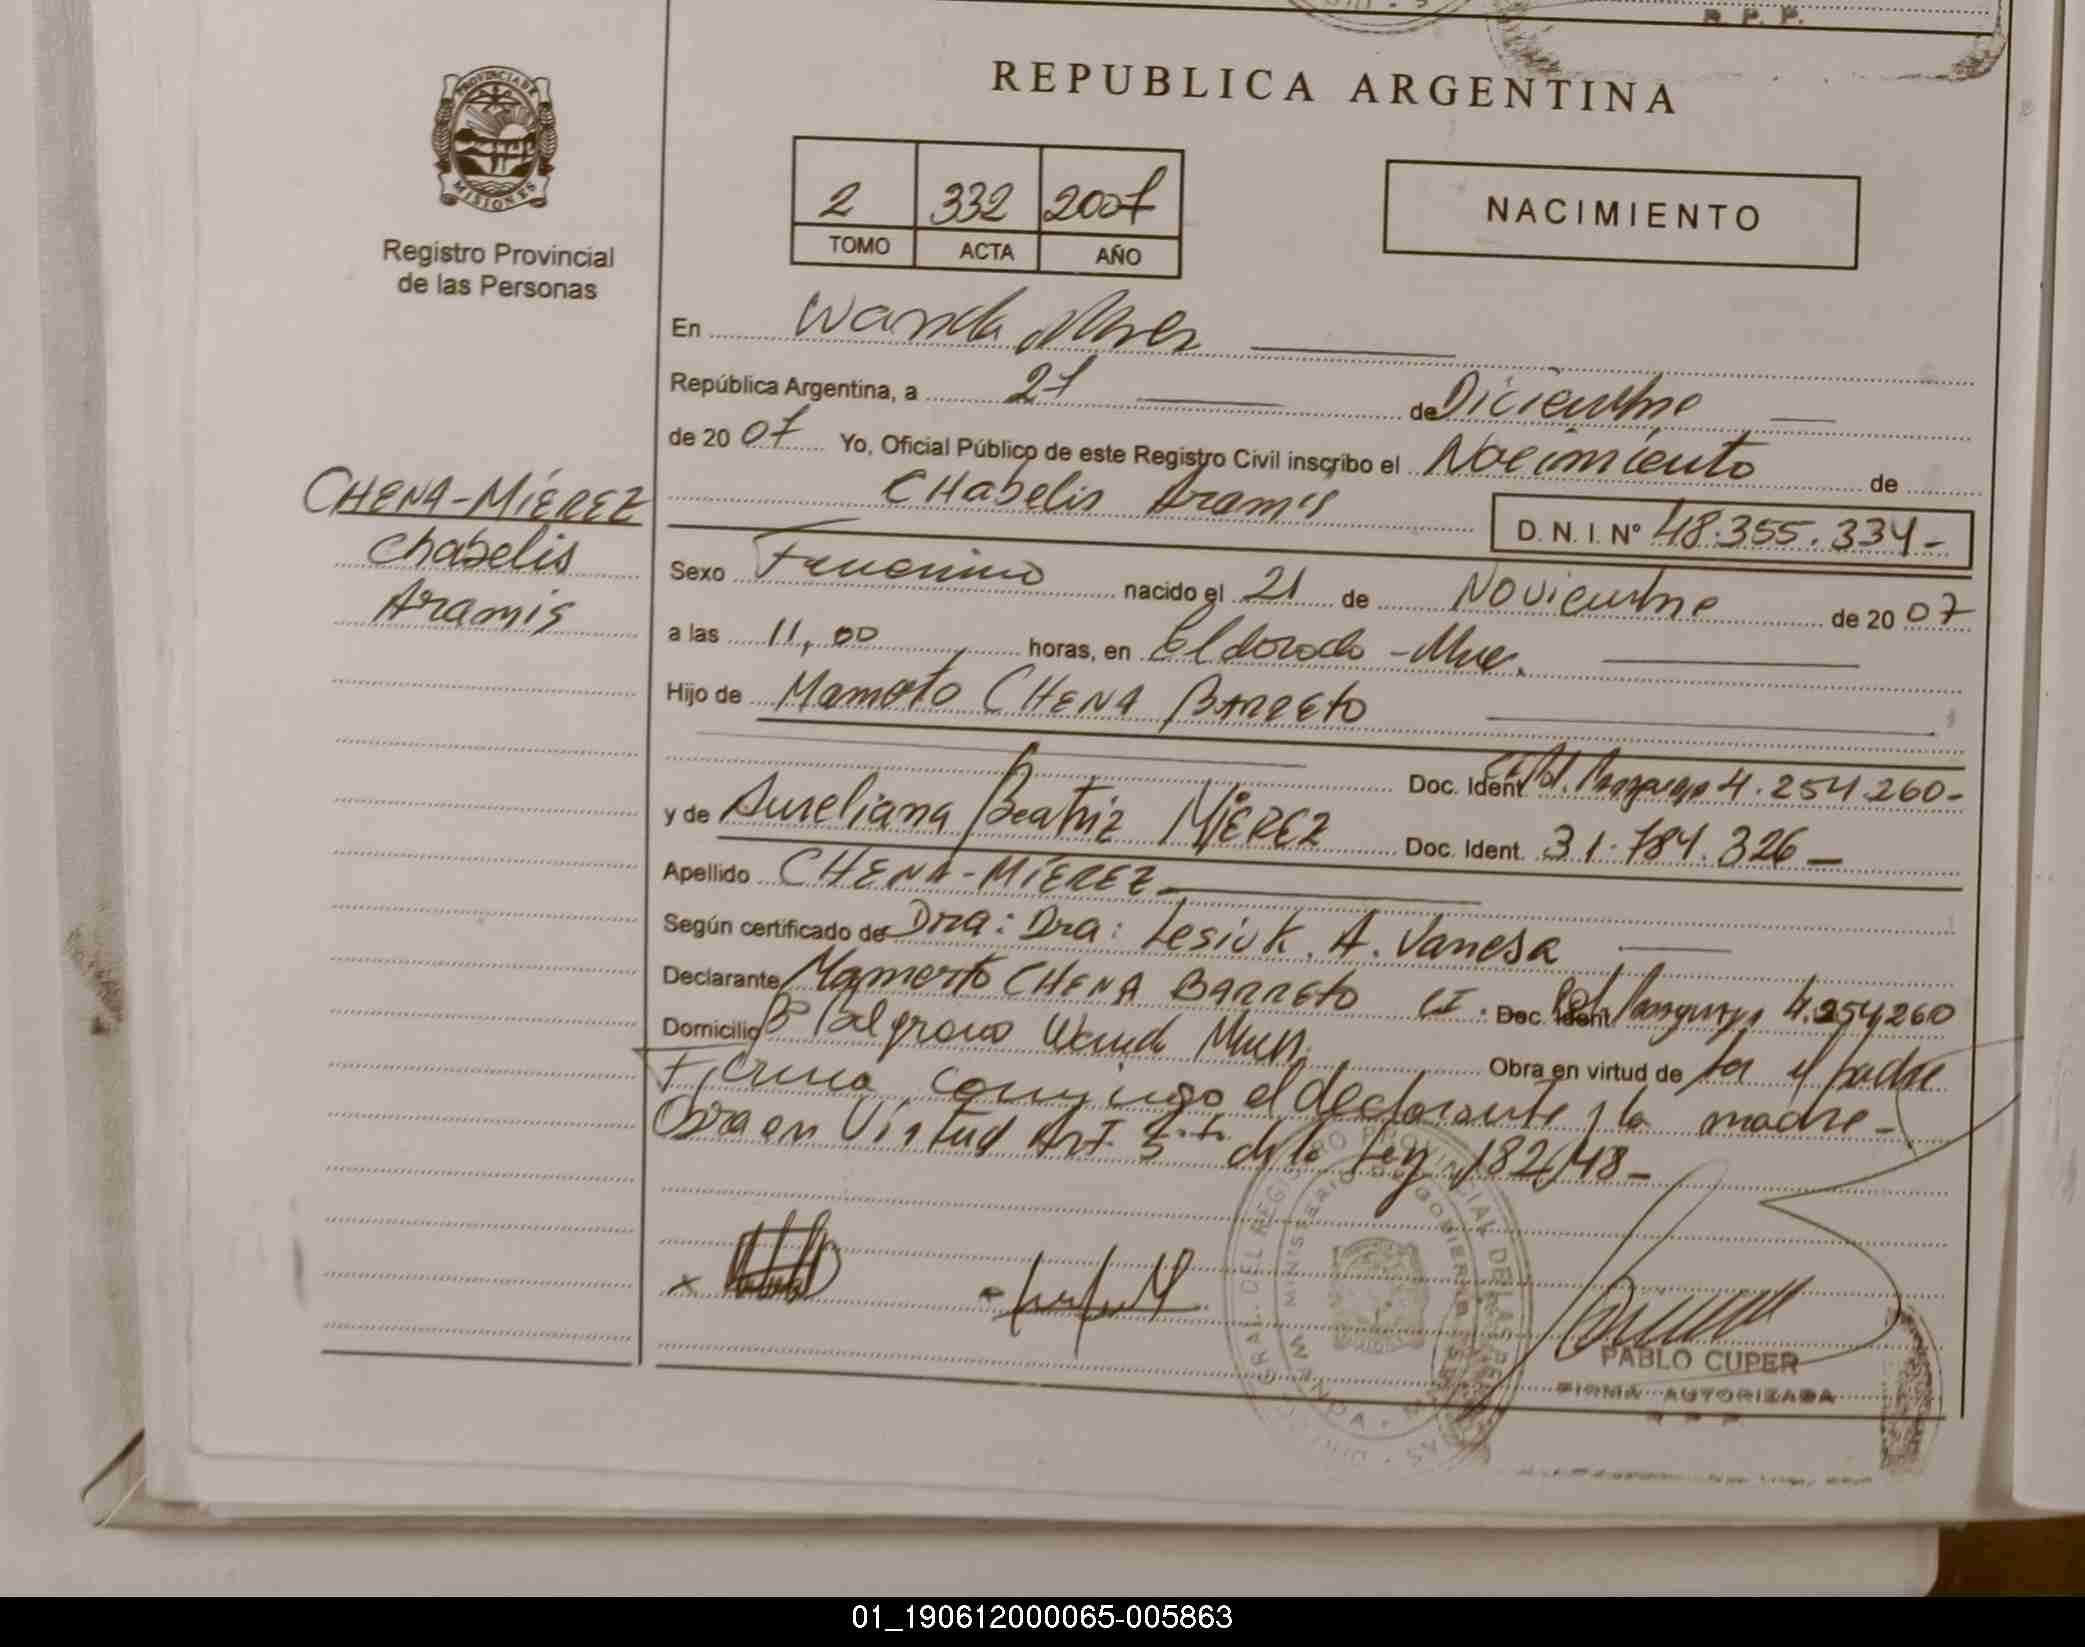 R. P. P.
PROVINCIA DE
MISIONES
Registro Provincial
de las Personas
REPUBLICA ARGENTINA
2 332 2007
TOMO ACTA AÑO
NACIMIENTO
En Wanda Mnes
República Argentina, a 27 de Diciembre
de 20 07 Yo, Oficial Público de este Registro Civil inscribo el Nacimiento de
CHabelis Aramis D. N. I. Nº 48.355.334-
CHENA-MIÉREZ
Chabelis
Aramis
Sexo Femenino nacido el 21 de Noviembre de 20 07
a las 11,00 horas, en Eldorado - Mnes.
Hijo de Mamerto CHENA BARRETO
Doc. Ident. 4.254.260-
y de Aureliana Beatriz MIÉREZ Doc. Ident. 31.784.326-
Apellido CHENA-MIEREZ-
Según certificado de Dra: Dra: Lesiuk. A. Vanesa
Declarante Mamerto CHENA BARRETO CI. Doc. Ident. 4.254,260
Domicilio Bº Belgrano Wanda Mnes. Obra en virtud de ser el padre
Firma conmigo el declarante y la madre-
Obra en Virtud Art. de la Ley 18248-
DEL REGISTRO PROVINCIAL DE LAS PERSONAS
MINISTERIO DE GOBIERNO
WANDA
PABLO CUPER
FIRMA AUTORIZADA
01_190612000065-005863